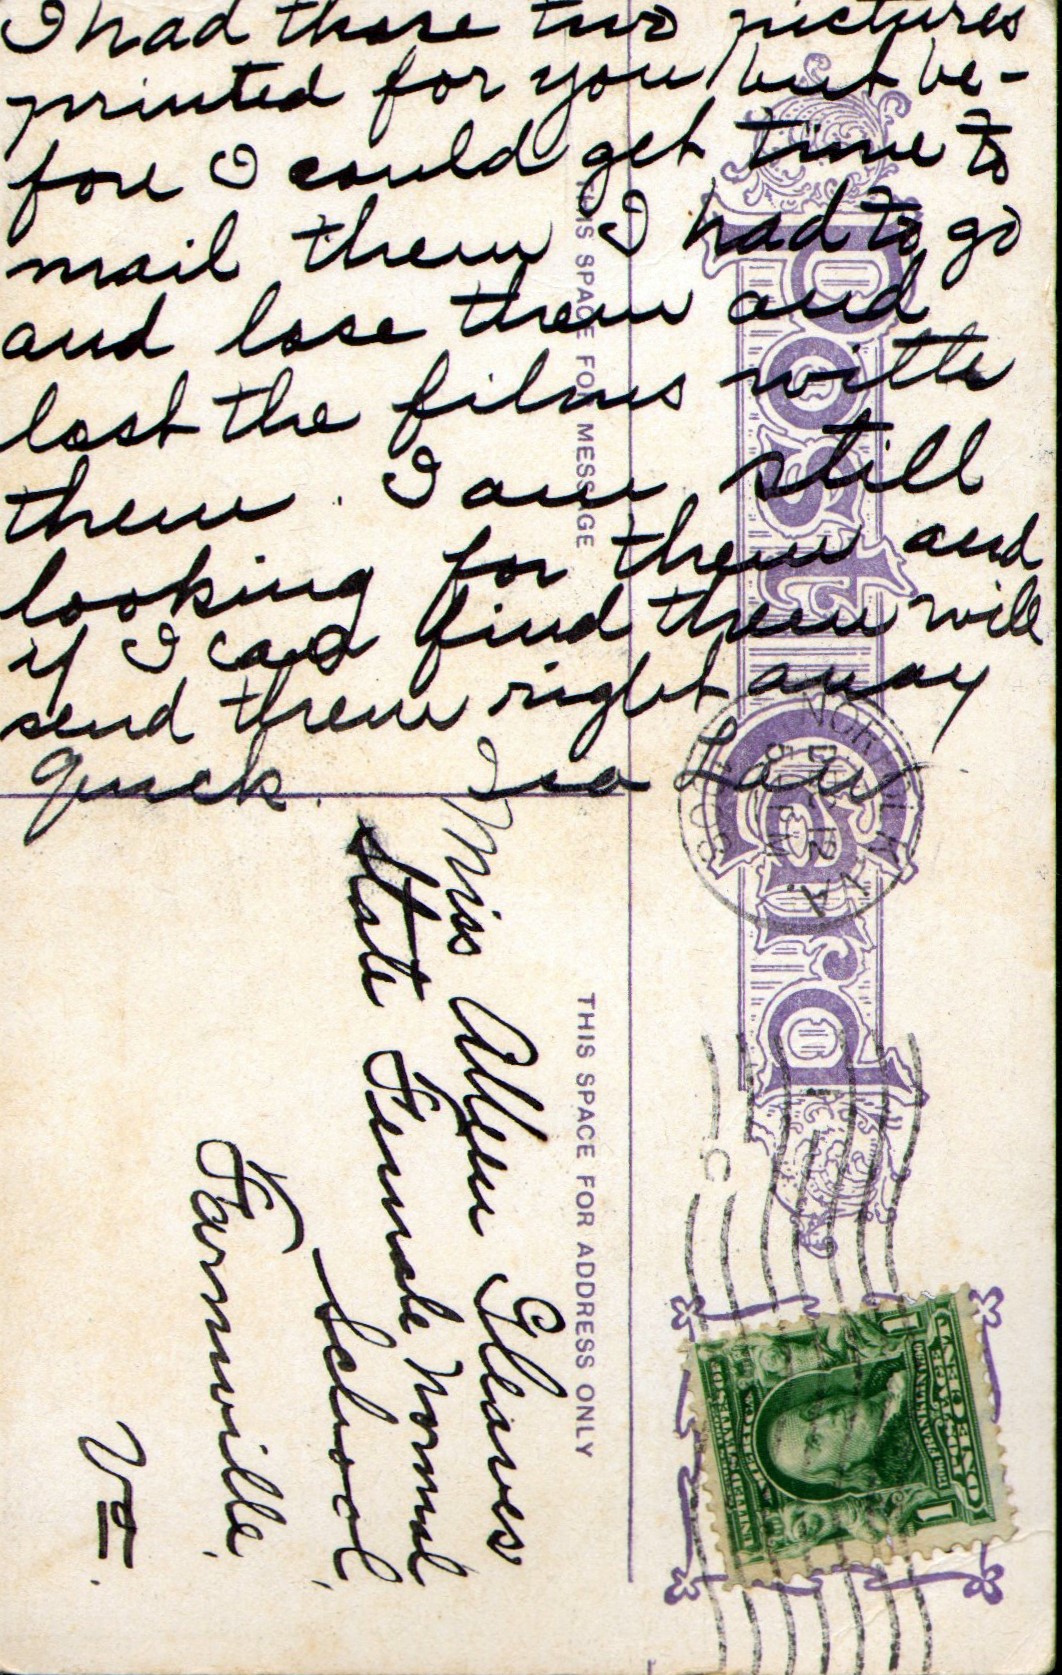 I had those two pictures
printed for you but be-
fore I could get time to
mail them I had to go
and lose them and
lost the films with
them. I am still
looking for them and
if I can find them will
send them right away
quick.
Post Card
THIS SPACE FOR MESSAGE
THIS SPACE FOR ADDRESS ONLY
Miss Gleaves
State Female Normal
School,
Farmville,
Va.
1 1
ONE CENT